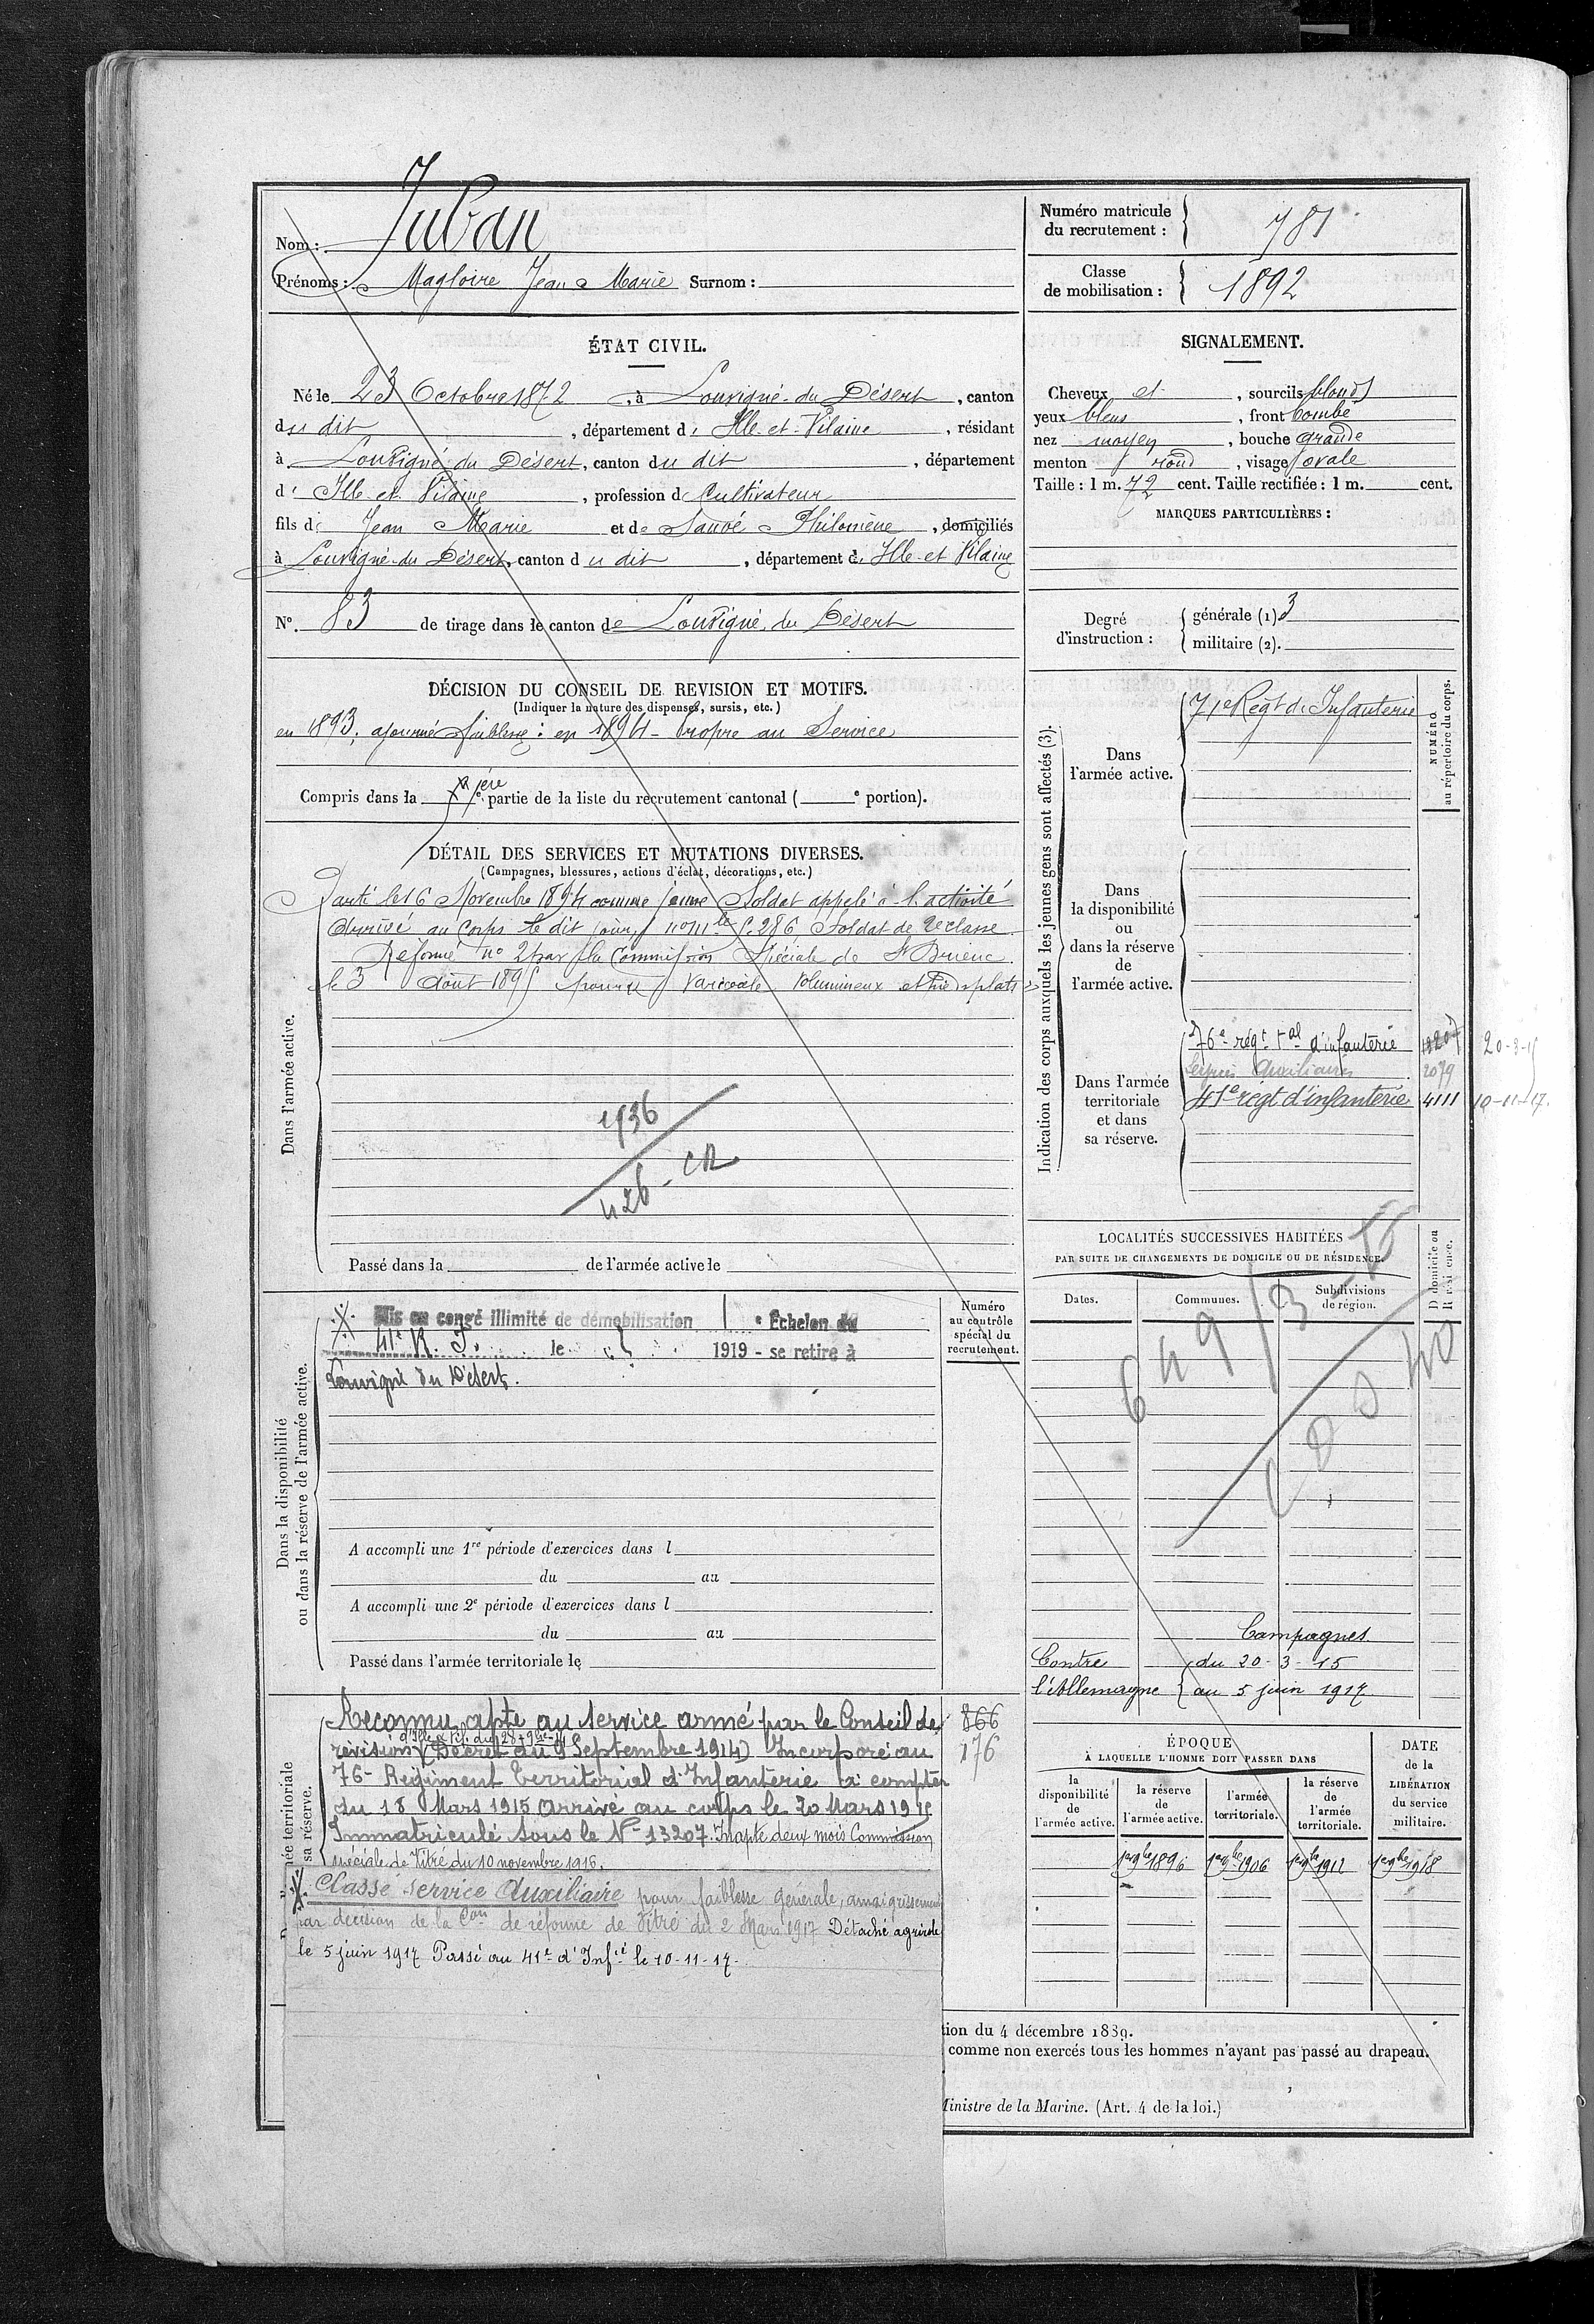 Nom : Juban
Prénoms : Magloire Jean Marie Surnom :
Numéro matricule
du recrutement : 781
Classe
de mobilisation : 1892
ÉTAT CIVIL.
Né le 23 Octobre 1872, à Louvigné-du Désert, canton
du dit, département d'Ille-et-Vilaine, résidant
à Louvigné du Désert, canton du dit, département
d'Ille et Vilaine, profession de Cultivateur
fils de Jean Marie et de Sauvé Philomène, domiciliés
à Louvigné-du Désert, canton du dit, département d'Ille-et Vilaine
N° 83 de tirage dans le canton de Louvigné du Désert
DÉCISION DU CONSEIL DE REVISION ET MOTIFS.
(Indiquer la nature des dispenses, sursis, etc.)
en 1893, ajourné faiblesse : en 1894 - Propre au Service
Compris dans la 1ère partie de la liste du recrutement cantonal ( e portion).
DÉTAIL DES SERVICES ET MUTATIONS DIVERSES.
(Campagnes, blessures, actions d'éclat, décorations, etc.)
Dans l'armée active.
Parti le 16 Novembre 1894 comme jeune Soldat appelé à l'activité
Arrivé au Corps le dit jour, n° mle 5.286, Soldat de 2e classe.
Réformé n° 2 par la Commission Spéciale de St Brieuc
le 3 Août 1895 pour Varicocèle volumineux et pieds plats
1936
426 - CR
Passé dans la de l'armée active le
Dans la disponibilité
ou dans la réserve de l'armée active.
Mis en congé illimité de démobilisation 1 e Echelon du
41e R. I. le 1919 - se retire à
Louvigné du Désert.
Numéro
au contrôle
spécial du
recrutement.
A accompli une 1re période d'exercices dans l
du au
A accompli une 2e période d'exercices dans l
du au
Passé dans l'armée territoriale le
ée territoriale
sa réserve.
Reconnu apte au service armé par le Conseil de
révision d'Ille et Vil. du 28 - 9bre - 14 (Décret du 9 Septembre 1914) Incorporé au
76e Régiment Territorial d'Infanterie à compter
du 18 Mars 1915 arrivé au corps le 20 Mars 1915
Immatriculé sous le N° 13207. Inapte deux mois Commission
spéciale de Vitré du 10 novembre 1916.
Classé Service Auxiliaire pour faiblesse générale, amaigrissement
par décision de la Con de réforme de Vitré du 2 Mars 1917 Détaché agricole
le 5 juin 1917 Passé au 41e d'Infie le 10-11-17.
866
176
SIGNALEMENT.
Cheveux et, sourcils blonds
yeux bleus, front bombé
nez moyen, bouche grande
menton rond, visage ovale
Taille : 1 m. 72 cent. Taille rectifiée : 1 m. cent.
MARQUES PARTICULIÈRES :
Degré
d'instruction :
générale (1) 3
militaire (2).
Indication des corps auxquels les jeunes gens sont affectés (3).
NUMÉRO
au répertoire du corps.
Dans
l'armée active.
71e Régt d'Infanterie
Dans
la disponibilité
ou
dans la réserve
de
l'armée active.
Dans l'armée
territoriale
et dans
sa réserve.
76e régt tal d'infanterie 13207 20-3-15
Services Auxiliaires 2079
41e régt d'infanterie 4111 10-11-17.
LOCALITÉS SUCCESSIVES HABITÉES
PAR SUITE DE CHANGEMENTS DE DOMICILE OU DE RÉSIDENCE.
Dates. Communes. Subdivisions
de région.
D domicile ou
R résidence.
Campagnes
Contre du 20-3-15
l'Allemagne au 5 juin 1917
ÉPOQUE
À LAQUELLE L'HOMME DOIT PASSER DANS
la
disponibilité
de
l'armée active.
la réserve
de
l'armée active.
l'armée
territoriale.
la réserve
de
l'armée
territoriale.
DATE
de la
LIBÉRATION
du service
militaire.
1er 9bre 1896 1er 9bre 1906 1er 9bre 1912 1er 9bre 1918
tion du 4 décembre 1889.
comme non exercés tous les hommes n'ayant pas passé au drapeau.
Ministre de la Marine. (Art. 4 de la loi.)